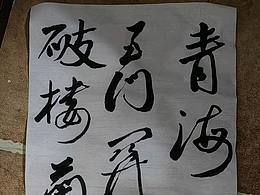 青海
玉门关
破楼